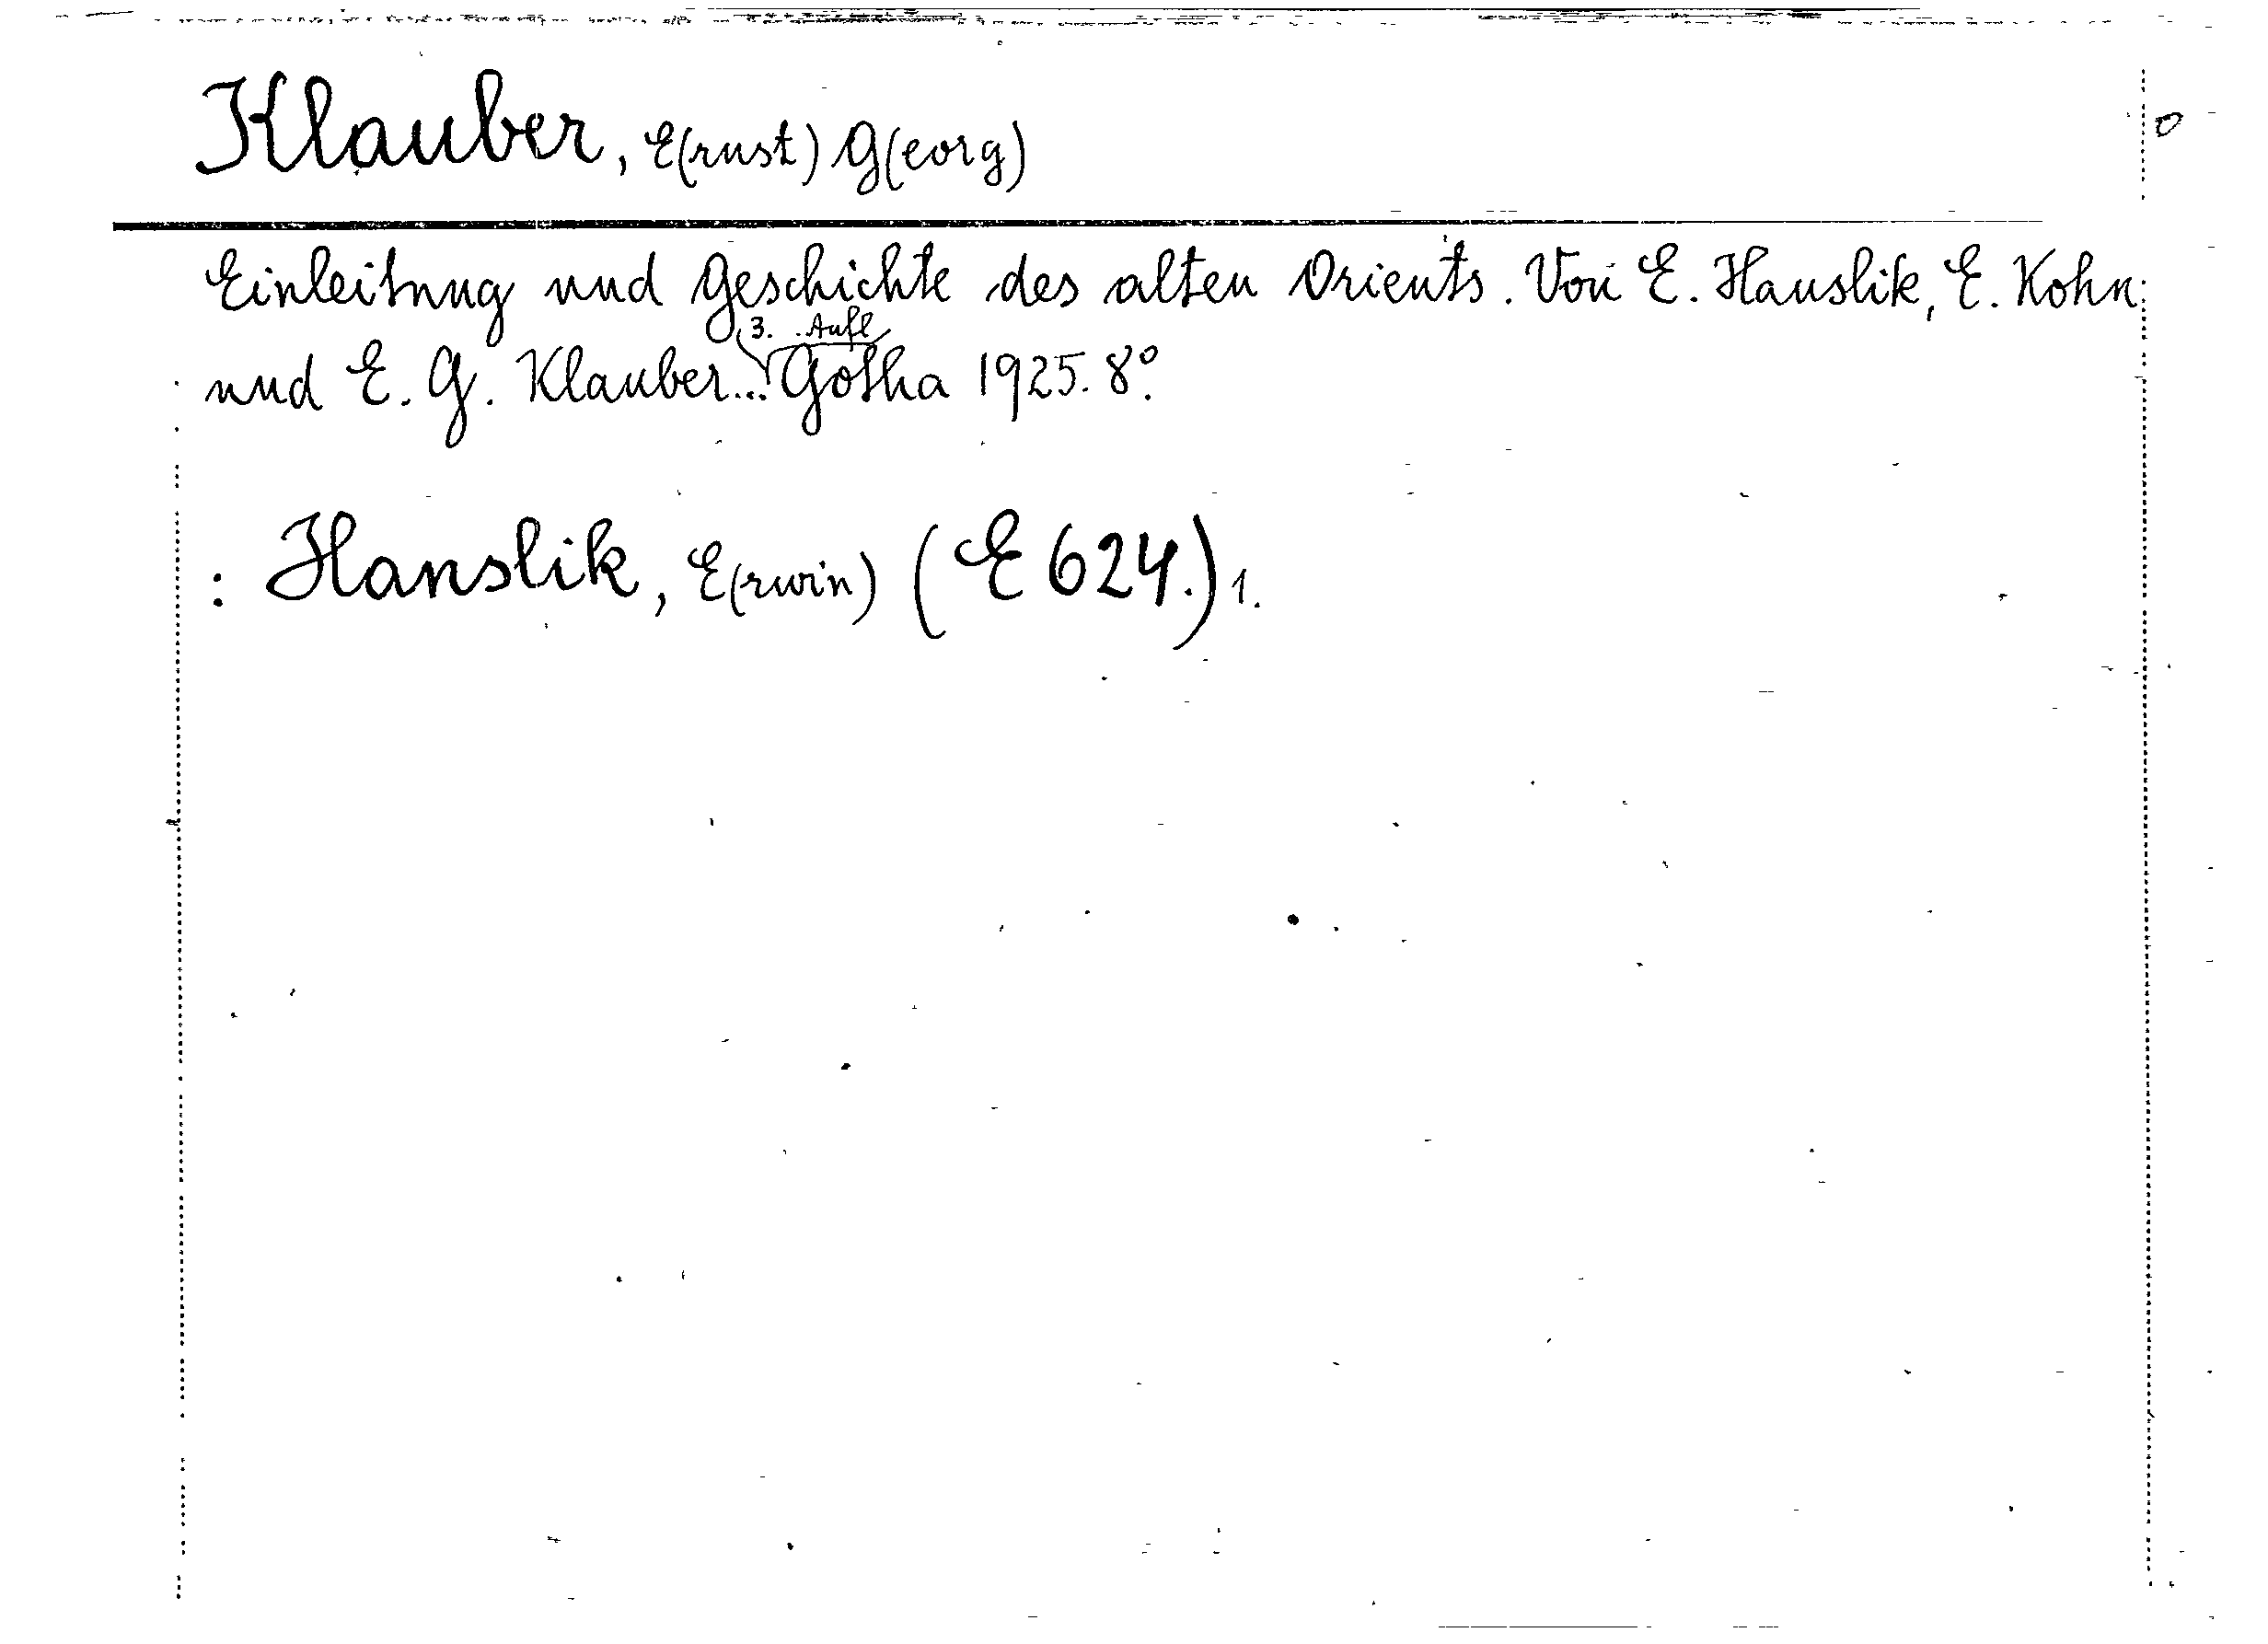 Klauber, E(rnst) G(eorg)
Einleitung und Geschichte des alten Orients. Von E. Hanslik, E. Kohn
3. Aufl
und E. G. Klauber... Gotha 1925. 8°.
: Hanslik, E(rwin) (E 624.) 1.